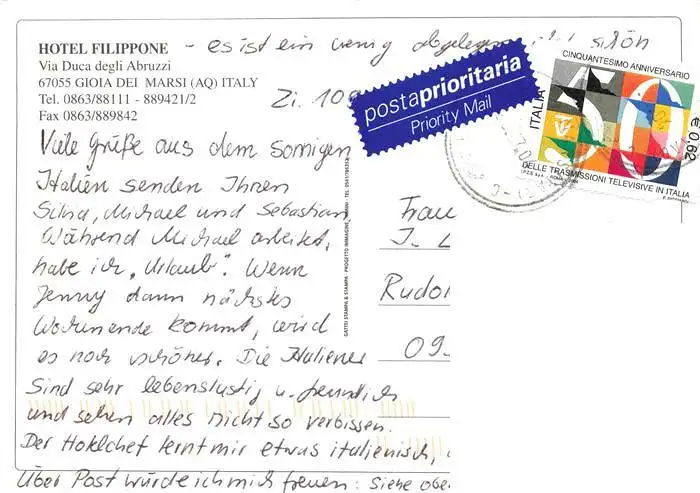 HOTEL FILIPPONE - es ist ein wenig abgelegen schön
Via Duca degli Abruzzi
67055 GIOIA DEI MARSI (AQ) ITALY
Tel. 0863/88111 - 889421/2
Fax 0863/889842
Zi. 109
postaprioritaria
Priority Mail
CINQUANTESIMO ANNIVERSARIO
ITALIA
€ 0,62
DELLE TRASMISSIONI TELEVISIVE IN ITALIA
Viele Grüße aus dem sonnigen
Italien senden Ihnen
Silvia, Michael und Sebastian.
Während Michael arbeitet,
habe ich „Urlaub". Wenn
Jenny dann nächstes
Wochenende kommt, wird
es noch schöner. Die Italiener
sind sehr lebenslustig u. freundlich
und sehen alles nicht so verbissen.
Der Hotelchef lernt mir etwas italienisch,
Über Post würde ich mich freuen: Siehe obe
GATTO STAMPA & STAMPA - PROGETTO IMMAGINE
Frau
J. L
Rudol
09